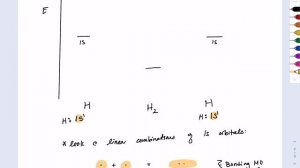 E
1S 1S
H H₂ H
H: 1S¹ H: 1S¹
* look @ linear combinations of 1s orbitals:
+ = } Bonding MO